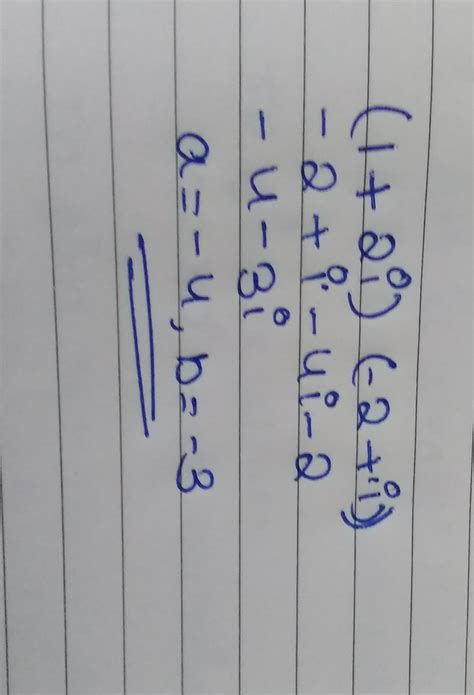 (1 + 2i) (-2 + i)
- 2 + i - 4i - 2
- 4 - 3i
a = - 4, b = - 3